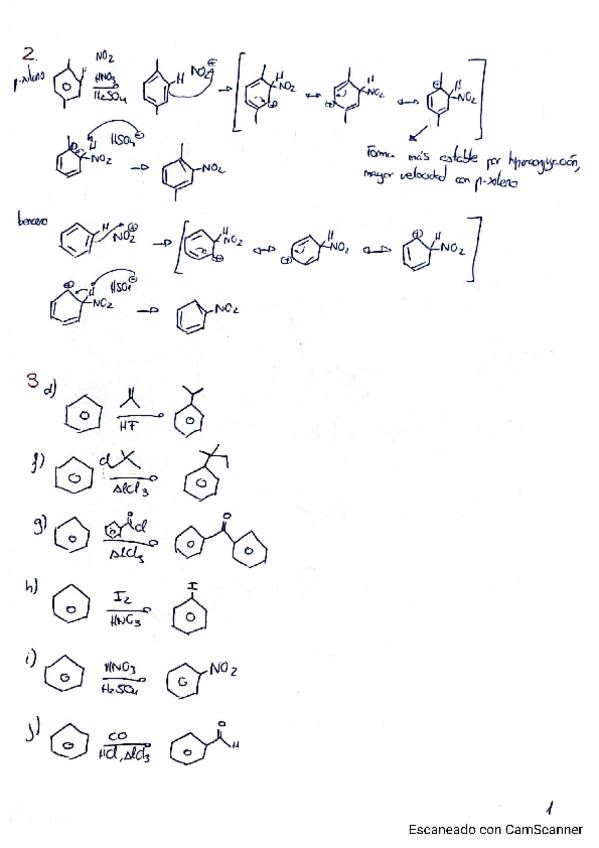 2.
p-xileno
NO₂
HNO₃
H₂SO₄
H
NO₂⊕
H
NO₂
⊕
H
NO₂
⊕
H
NO₂
⊕
H
NO₂
HSO₄⊖
NO₂
Forma más estable por hiperconjugación,
mayor velocidad con p-xileno
benceno
H
NO₂⊕
H
NO₂
⊕
H
NO₂
⊕
⊕
H
NO₂
⊕
H
NO₂
HSO₄⊖
NO₂
3
d)
HF
f)
Cl
AlCl₃
g)
O
Cl
AlCl₃
O
h)
I₂
HNO₃
I
i)
HNO₃
H₂SO₄
NO₂
j)
CO
HCl, AlCl₃
O
H
1
Escaneado con CamScanner